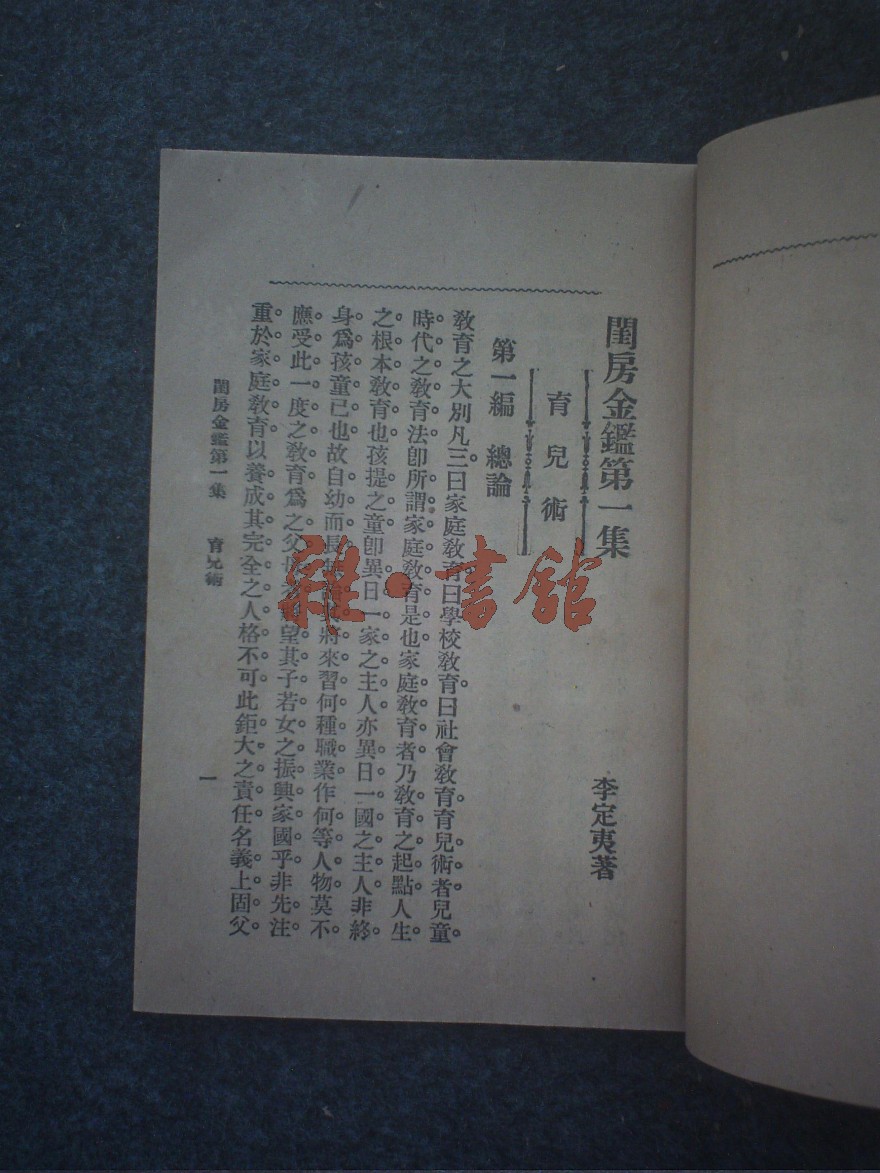 閨房金鑑第一集
李定夷著
育兒術
第一編 總論
教育之大別凡三曰家庭教育曰學校教育曰社會教育育兒術者兒童
時代之教育法卽所謂家庭教育是也家庭教育者乃教育之起點人生
之根本教育也孩提之童卽異日一家之主人亦異日一國之主人非終
身爲孩童已也故自幼而長無論其將來習何種職業作何等人物莫不
應受此一度之教育爲之父母者望其子若女之振興家國乎非先注
重於家庭教育以養成其完全之人格不可此鉅大之責任名義上固父
閨房金鑑第一集 育兒術
一
雜·書館